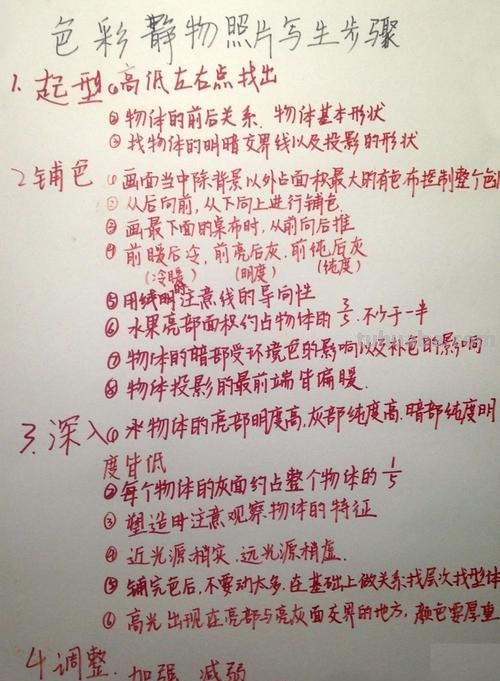 色彩静物照片写生步骤
1. 起型 ①高低左右点找出
②物体的前后关系、物体基本形状
③找物体的明暗交界线以及投影的形状
2铺色 ①画面当中除背景以外占面积最大的有色布控制整个色
②从后向前,从下向上进行铺色
③画最下面的桌布时,从前向后推
④前暖后冷,前亮后灰.前纯后灰
(冷暖) (明度) (纯度)
⑤用线时注意线的导向性
⑥水果亮部面积约占物体的3/5.不少于一半
⑦物体的暗部受环境色的影响以及补色的影响
⑧物体投影的最前端皆偏暖.
3.深入① 物体的亮部明度高,灰部纯度高.暗部纯度明
度皆低
②每个物体的灰面约占整个物体的1/5
③塑造时注意观察物体的特征
④近光源稍实.远光源稍虚.
⑤铺完色后,不要动太多.在基础上做关系找层次找型体
⑥高光出现在亮部与亮灰面交界的地方,颜色要厚重
4调整.加强 减弱